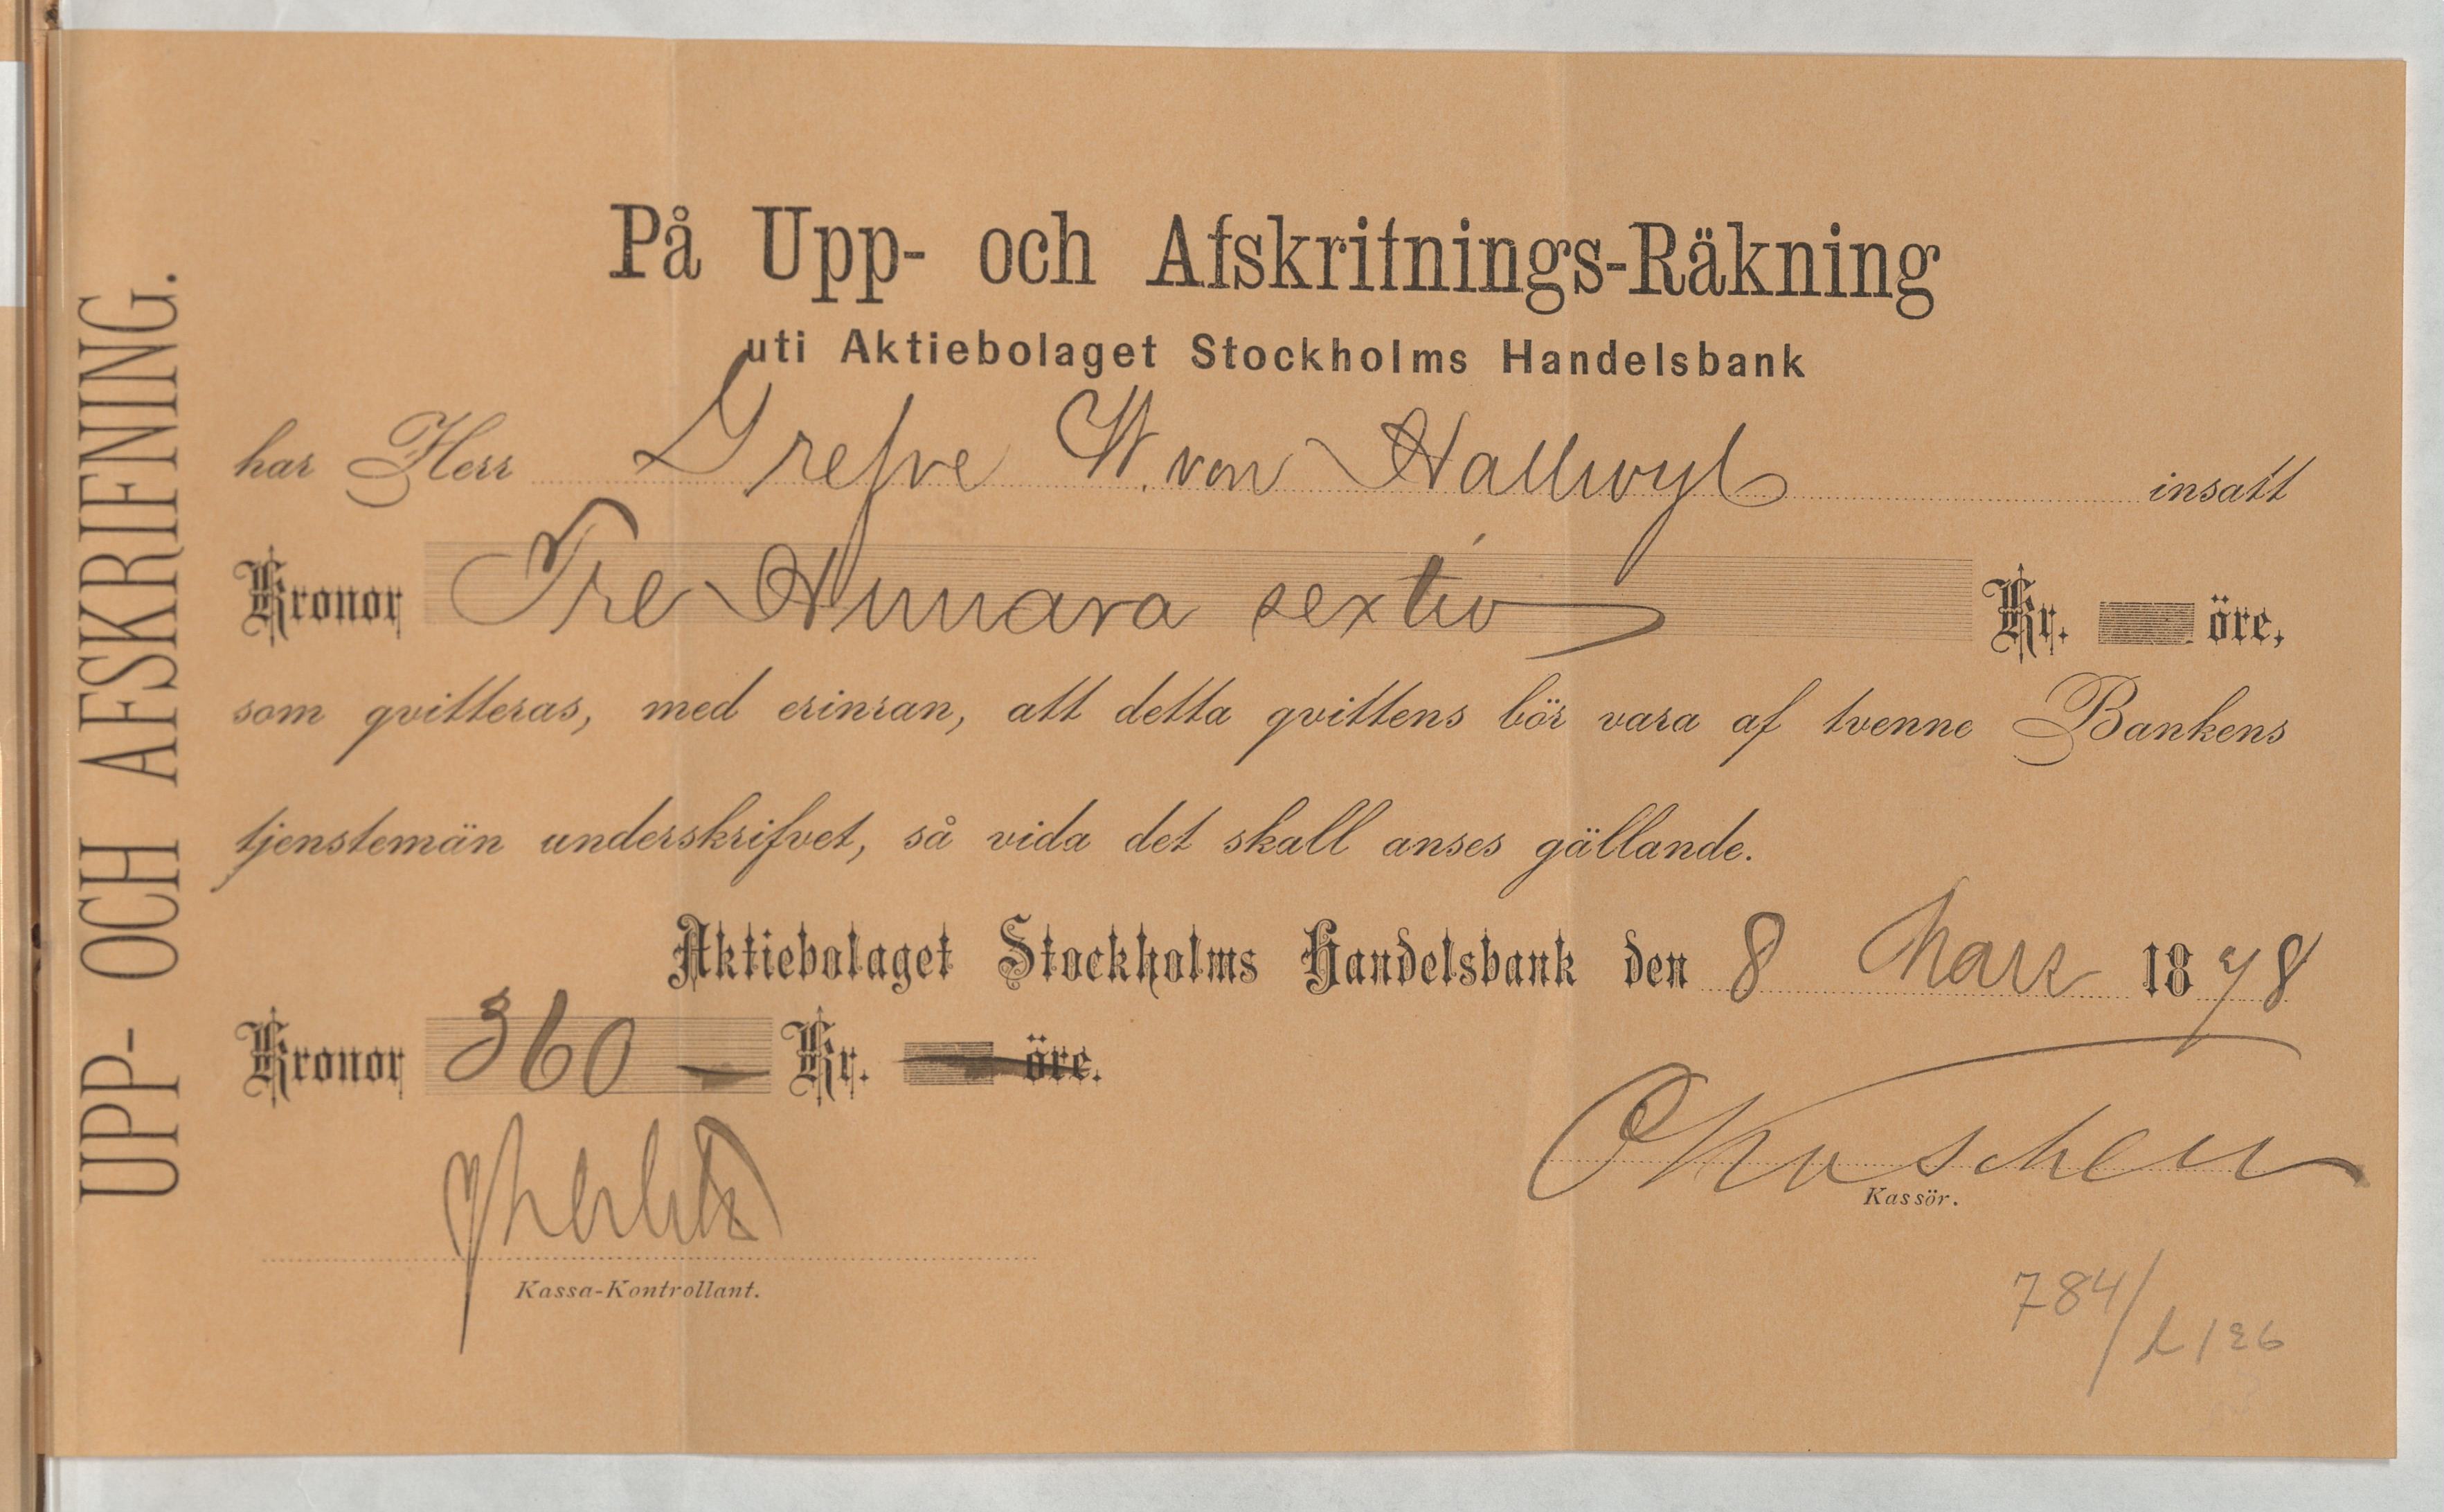 UPP- OCH AFSKRIFNING.
På Upp- och Afskrifnings-Räkning
uti Aktiebolaget Stockholms Handelsbank
har Herr Grefve W. von Hallwyl insatt
Kronor Tre Hundra sextio Kr. öre,
som qvitteras, med erinran, att detta qvittens bör vara af tvenne Bankens
tjenstemän underskrifvet, så vida det skall anses gällande.
Aktiebolaget Stockholms Handelsbank den 8 Mars 1878
Kronor 360 — Kr. — öre.
Kassör.
Kassa-Kontrollant.
784/